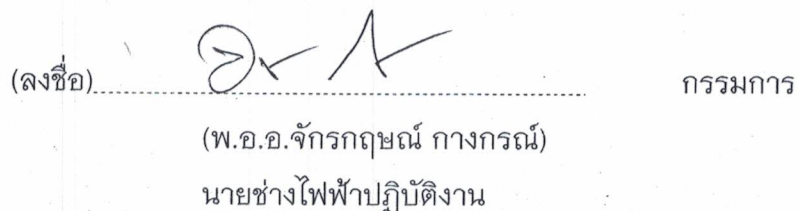 (ลงชื่อ) กรรมการ
(พ.อ.อ.จักรกฤษณ์ กางกรณ์)
นายช่างไฟฟ้าปฏิบัติงาน